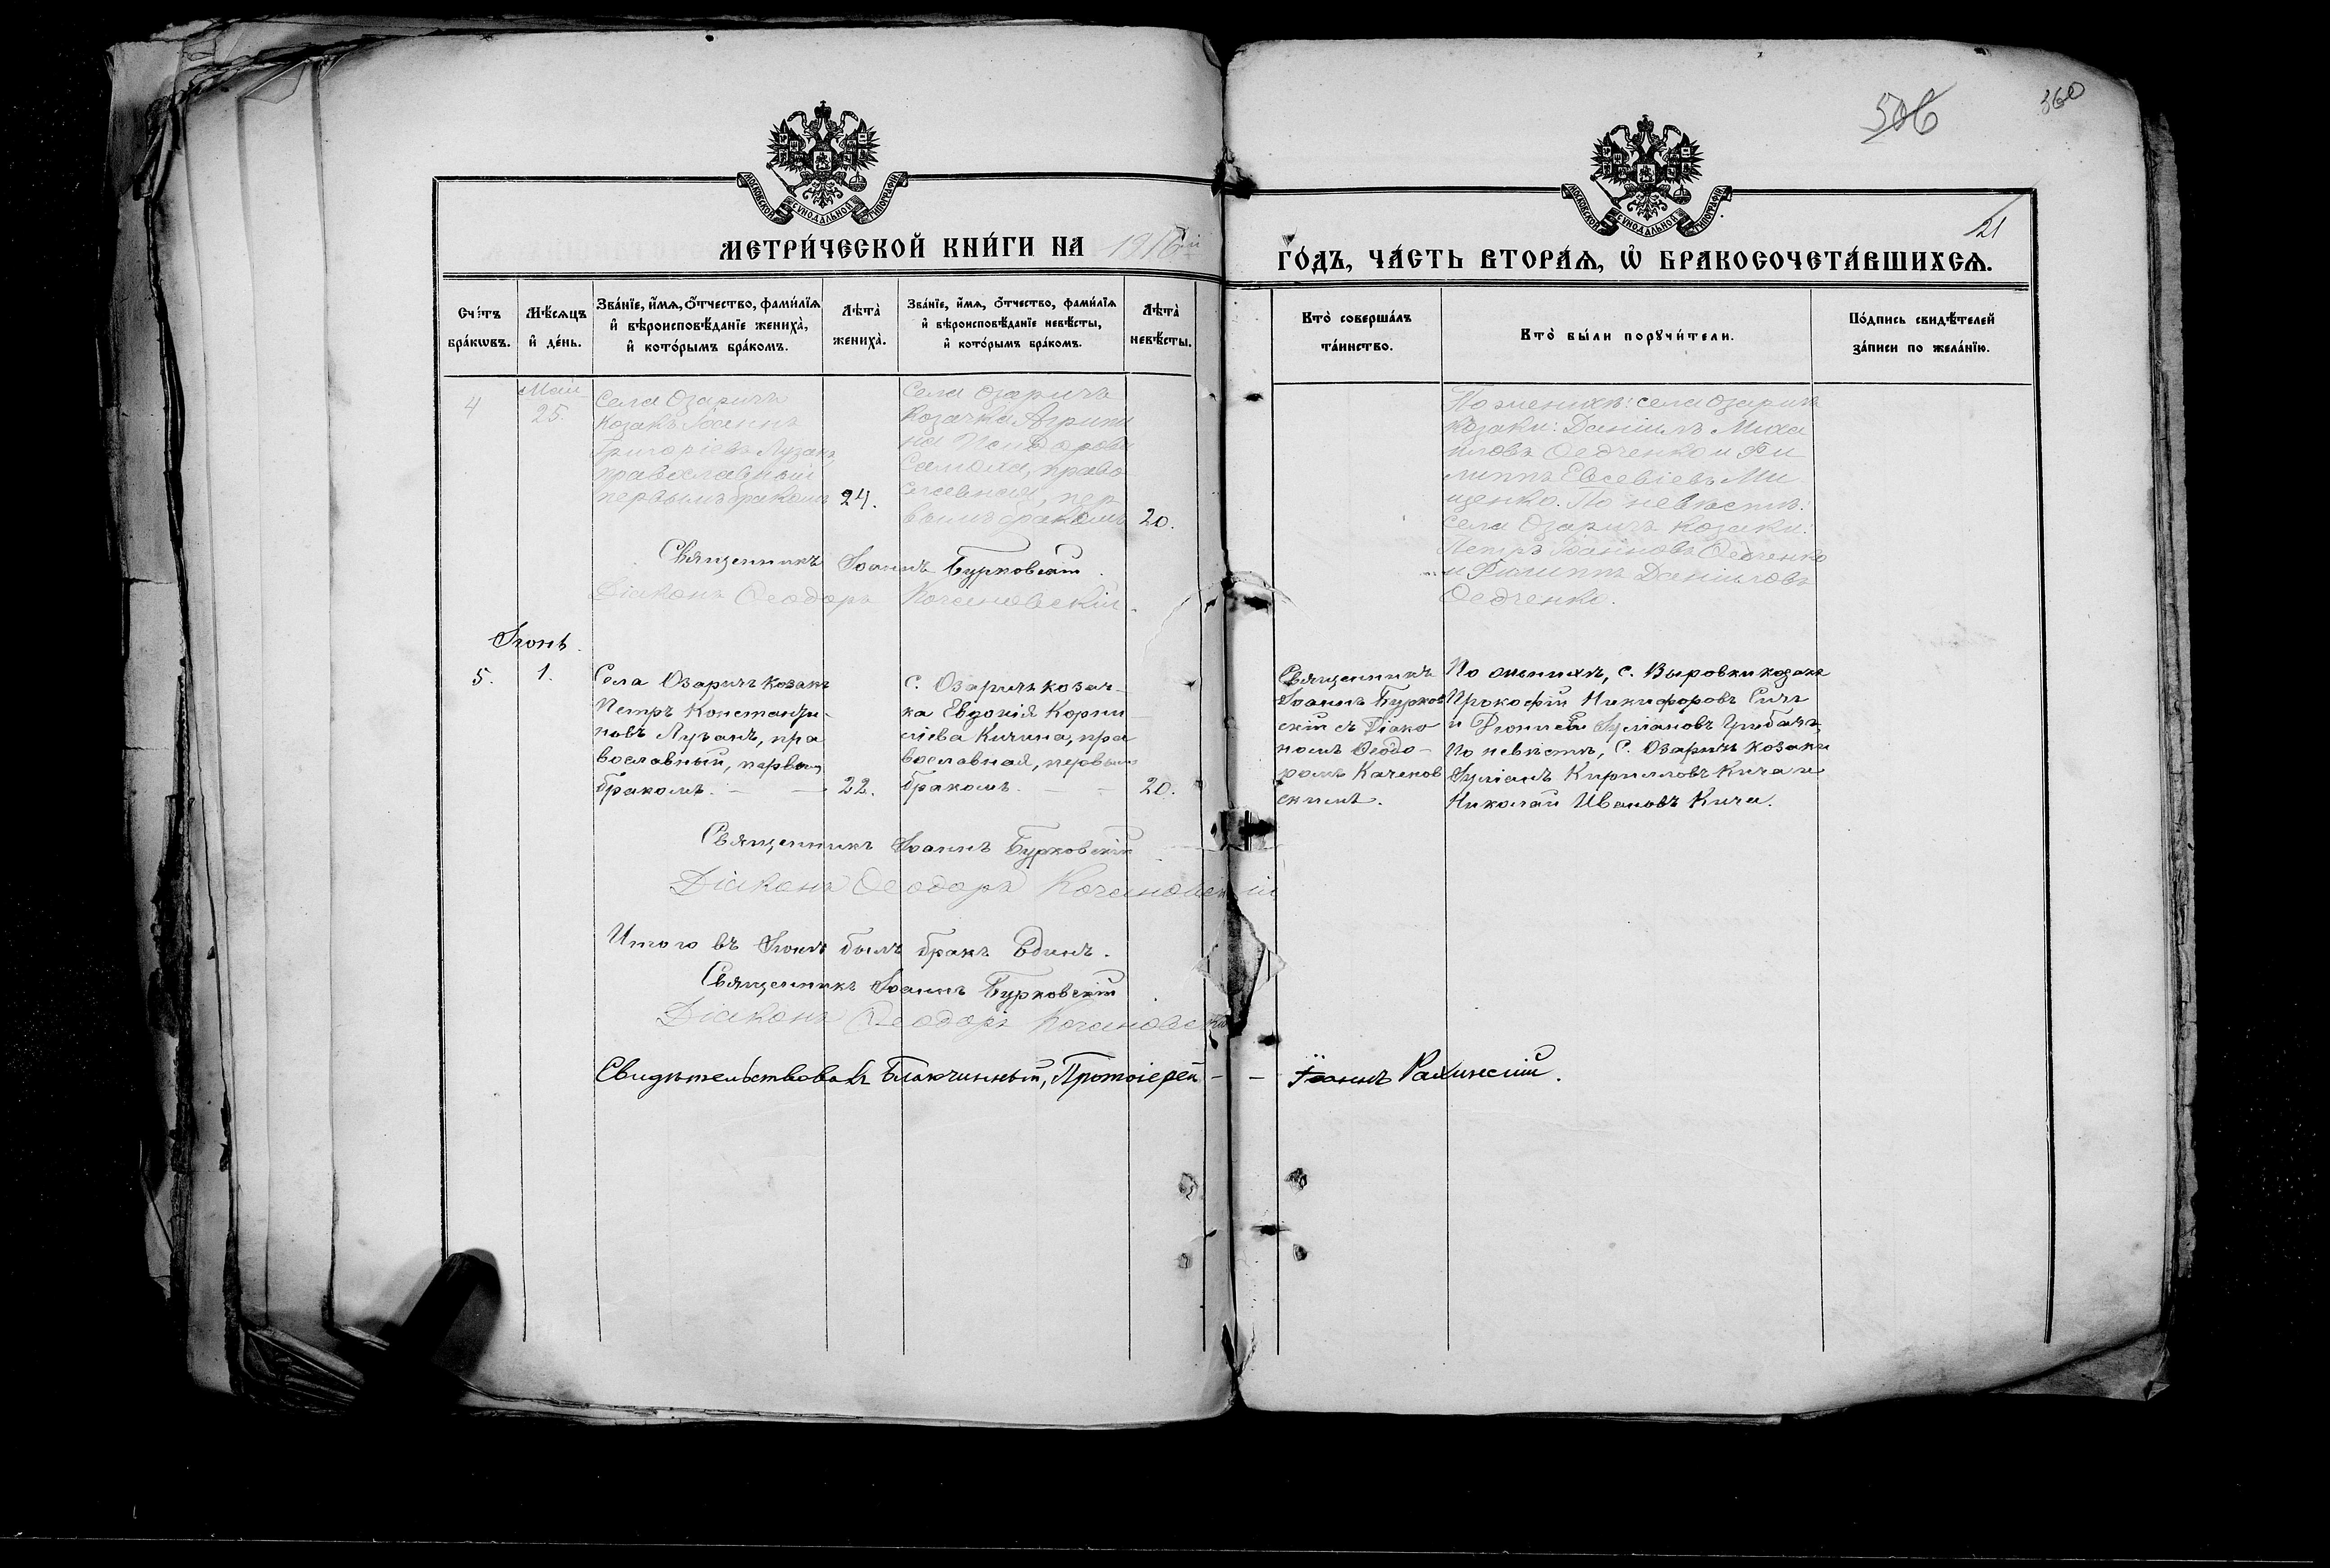 506
360
МОСКОВСКОЙ СУНОДАЛЬНОЙ ТИПОГРАФІИ
МОСКОВСКОЙ СУНОДАЛЬНОЙ ТИПОГРАФІИ
21
МЕТРИ́ЧЕСКОЙ КНИ́ГИ НА 1916й
ГО́ДЪ, ЧА́СТЬ ВТОРА́Ѧ, Ѡ҆ БРАКОСОЧЕТА́ВШИХСѦ.
Сче́тъ
бра́кѡвъ.
Мѣ́сѧцъ
и҆ де́нь.
Зва́нїе, и҆́мѧ, ѻ҆́тчество, фами́лїѧ
и҆ вѣроисповѣ́данїе жениха̀,
и҆ кото́рымъ бра́комъ.
Лѣта̀
жениха̀.
Зва́нїе, и҆́мѧ, ѻ҆́тчество, фами́лїѧ
и҆ вѣроисповѣ́данїе невѣ́сты,
и҆ кото́рымъ бра́комъ.
Лѣта̀
невѣ́сты.
Кто̀ соверша́лъ
та́инство.
Кто̀ бы́ли порꙋчи́тели.
По́дпись свидѣ́телей
за́писи по жела́нїю.
4
Май
25.
Села Озаричъ
Козакъ Іоаннъ
Григоріевъ Лузанъ,
православный
первымъ бракомъ
24.
Села Озаричъ
козачка Агрипи
на
Самоха, право
славная, пер
вымъ бракомъ
20.
По женихѣ: села Озаричъ
козаки: Даніилъ Миха
иловъ Ѳедченко и Фи
липпъ Евсевіевъ Ми
щенко. По невѣстѣ:
села Озаричъ козаки:
Петръ Іоанновъ Ѳедченко
и Филиппъ Даніиловъ
Ѳедченко.
Священникъ Іоаннъ Бурковскій.
Діаконъ Ѳеодоръ Кочановскій.
Іюнь.
5.
1.
Села Озаричъ козакъ
Петръ Константи-
новъ Лузанъ, пра
вославный, первым
бракомъ.
22.
С. Озаричъ козач-
ка Евдокія Корни
ліева Кичина, пра
вославная, первымъ
бракомъ.
20.
Священникъ
Іоаннъ Бурков
скій съ Діако
номъ Ѳеодо-
ромъ Качанов
скимъ.
По женихѣ, с. Выровки козаки
Прокофій Никифоровъ Сичъ
и Діонисій Іуліановъ Грибачъ,
по невѣстѣ, С. Озаричъ козаки
Іуліанъ Кирилловъ Кича и
Николай Ивановъ Кича.
Священникъ Іоаннъ Бурковскій
Діаконъ Ѳеодоръ Кочановскій
Итого въ Іюнѣ былъ бракъ Одинъ.
Священникъ Іоаннъ Бурковскій
Діаконъ Ѳеодоръ Кочановскій
Свидѣтельствовалъ Благочинный, Протоіерей - - Іоаннъ